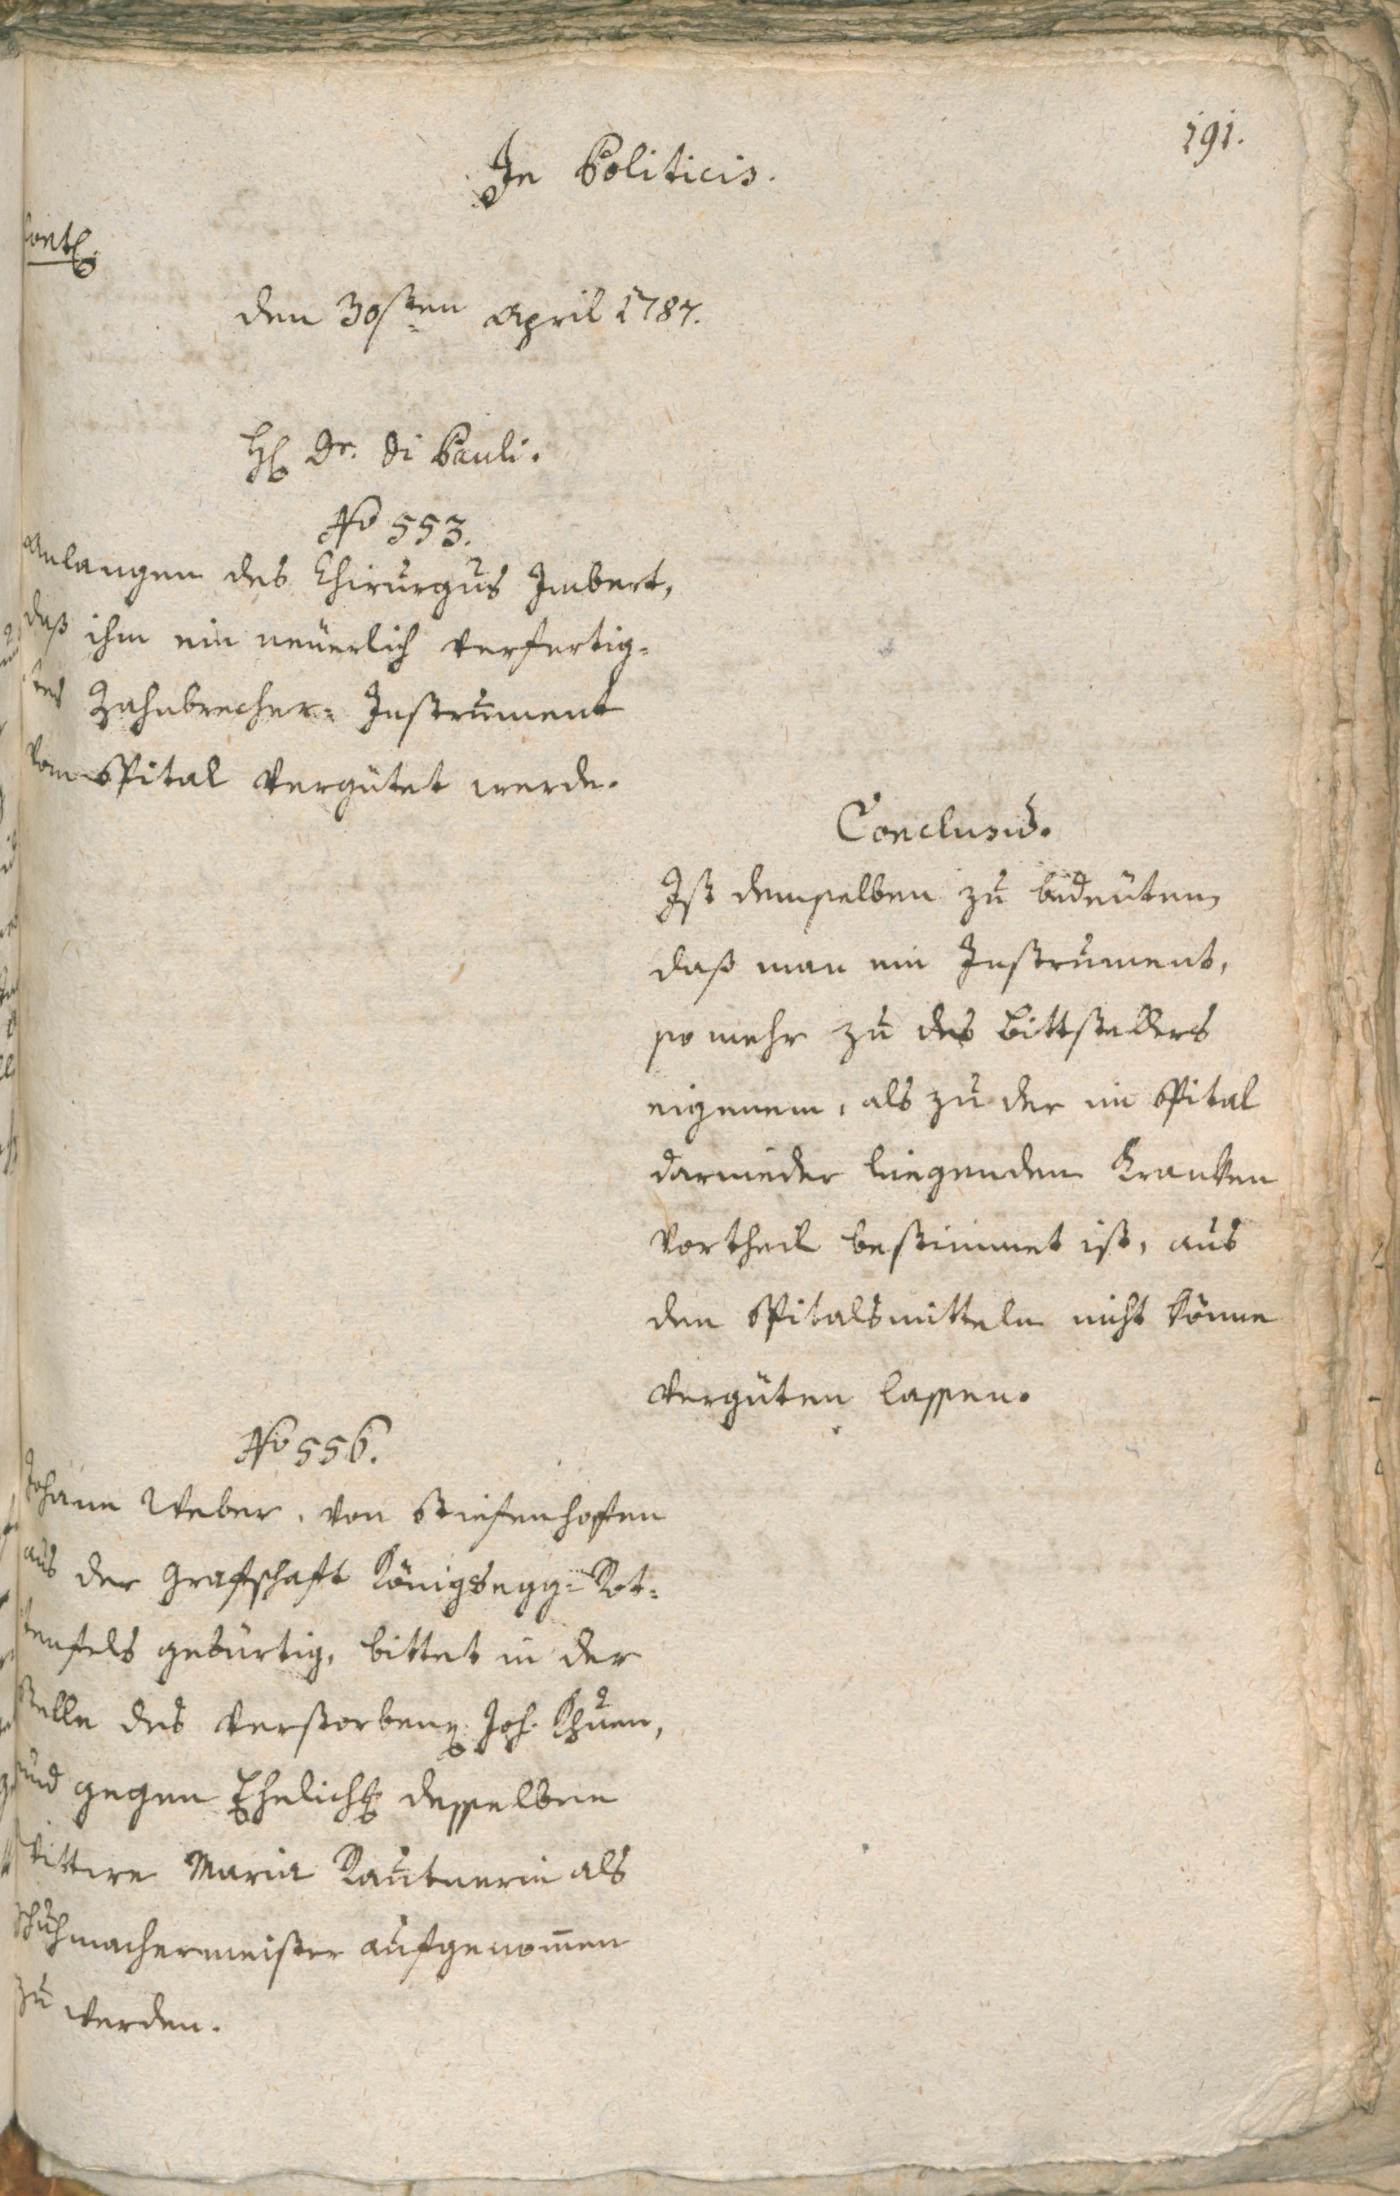 191.
In Politicis.
den 30sten April 1787.
H. Dr. Di Pauli.
No 553.
Anlangen des Chirurgus Imbert,
daß ihm ein neüerlich verfertig-
tes Zahnbrecher-Instrument
vom Spital vergütet werde.
Conclusu͂.
Ist demselben zu bedeüten,
daß man ein Instrument,
so mehr zu des Bittstellers
eigenem, als zu der im Spital
darnieder liegenden Kranken
Vortheil bestimmet ist, aus
den Spitalsmitteln nicht könne
vergüten lassen.
No 556.
Johann Weber, von Stiefenhoffen
aus der Grafschaft Königsegg-Rot-
tenfels gebürtig, bittet in der
Stelle des verstorbenen Joh. Khuen,
und gegen Ehelich desselben
Wittwe Maria Rautnerin als
Schuhmachermeister aufgenom̄en
zu werden.